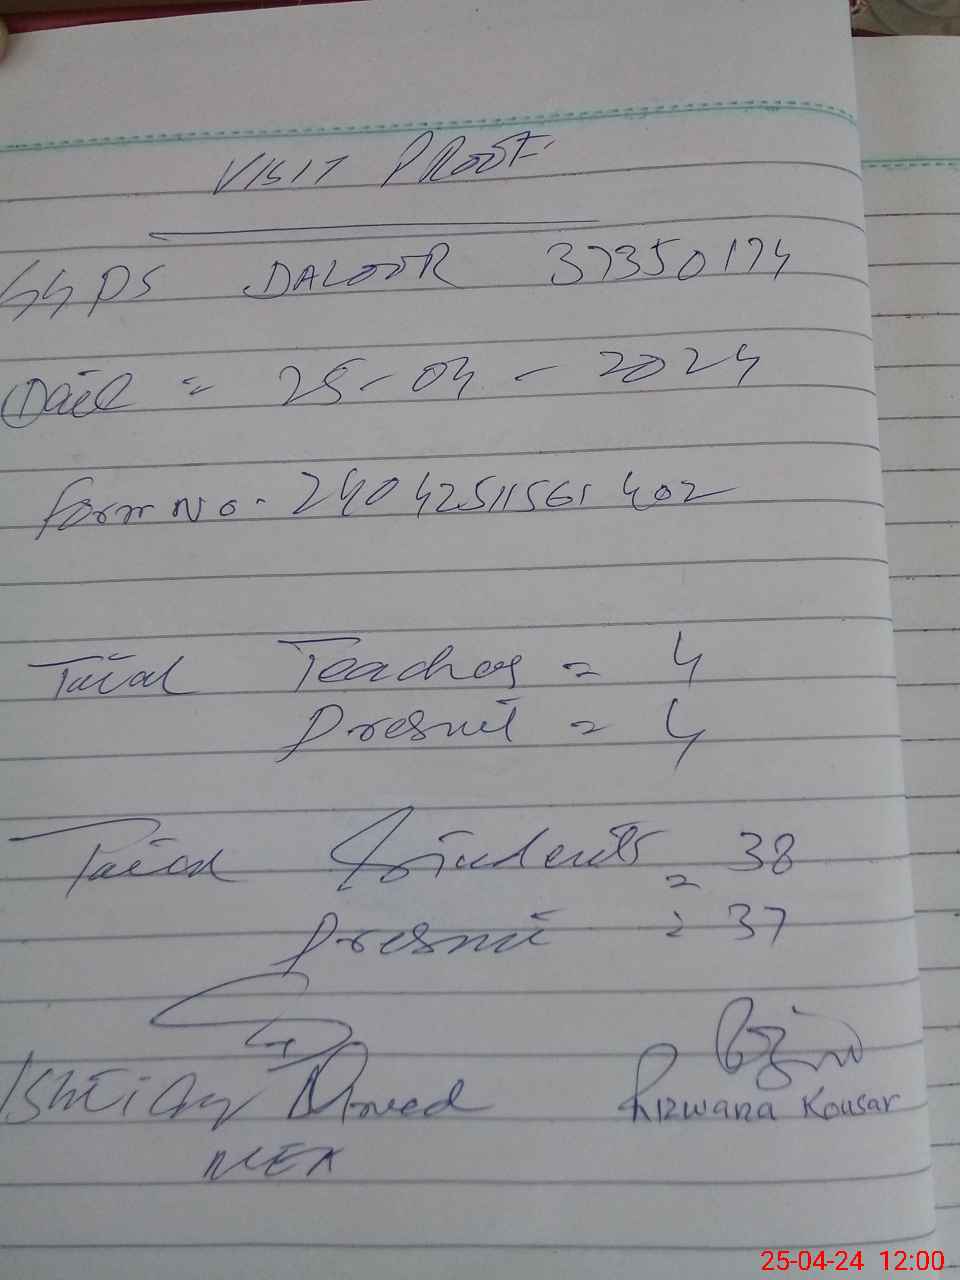 VISIT PROOF
GGPS DALOOR 37350174
Date = 25-04-2024
Form No. 240425115651402
Total Teachers = 4
Present = 4
Total Students = 38
Present = 37
Ishtiaq Ahmed
Rizwana Kousar
MEA
25-04-24 12:00